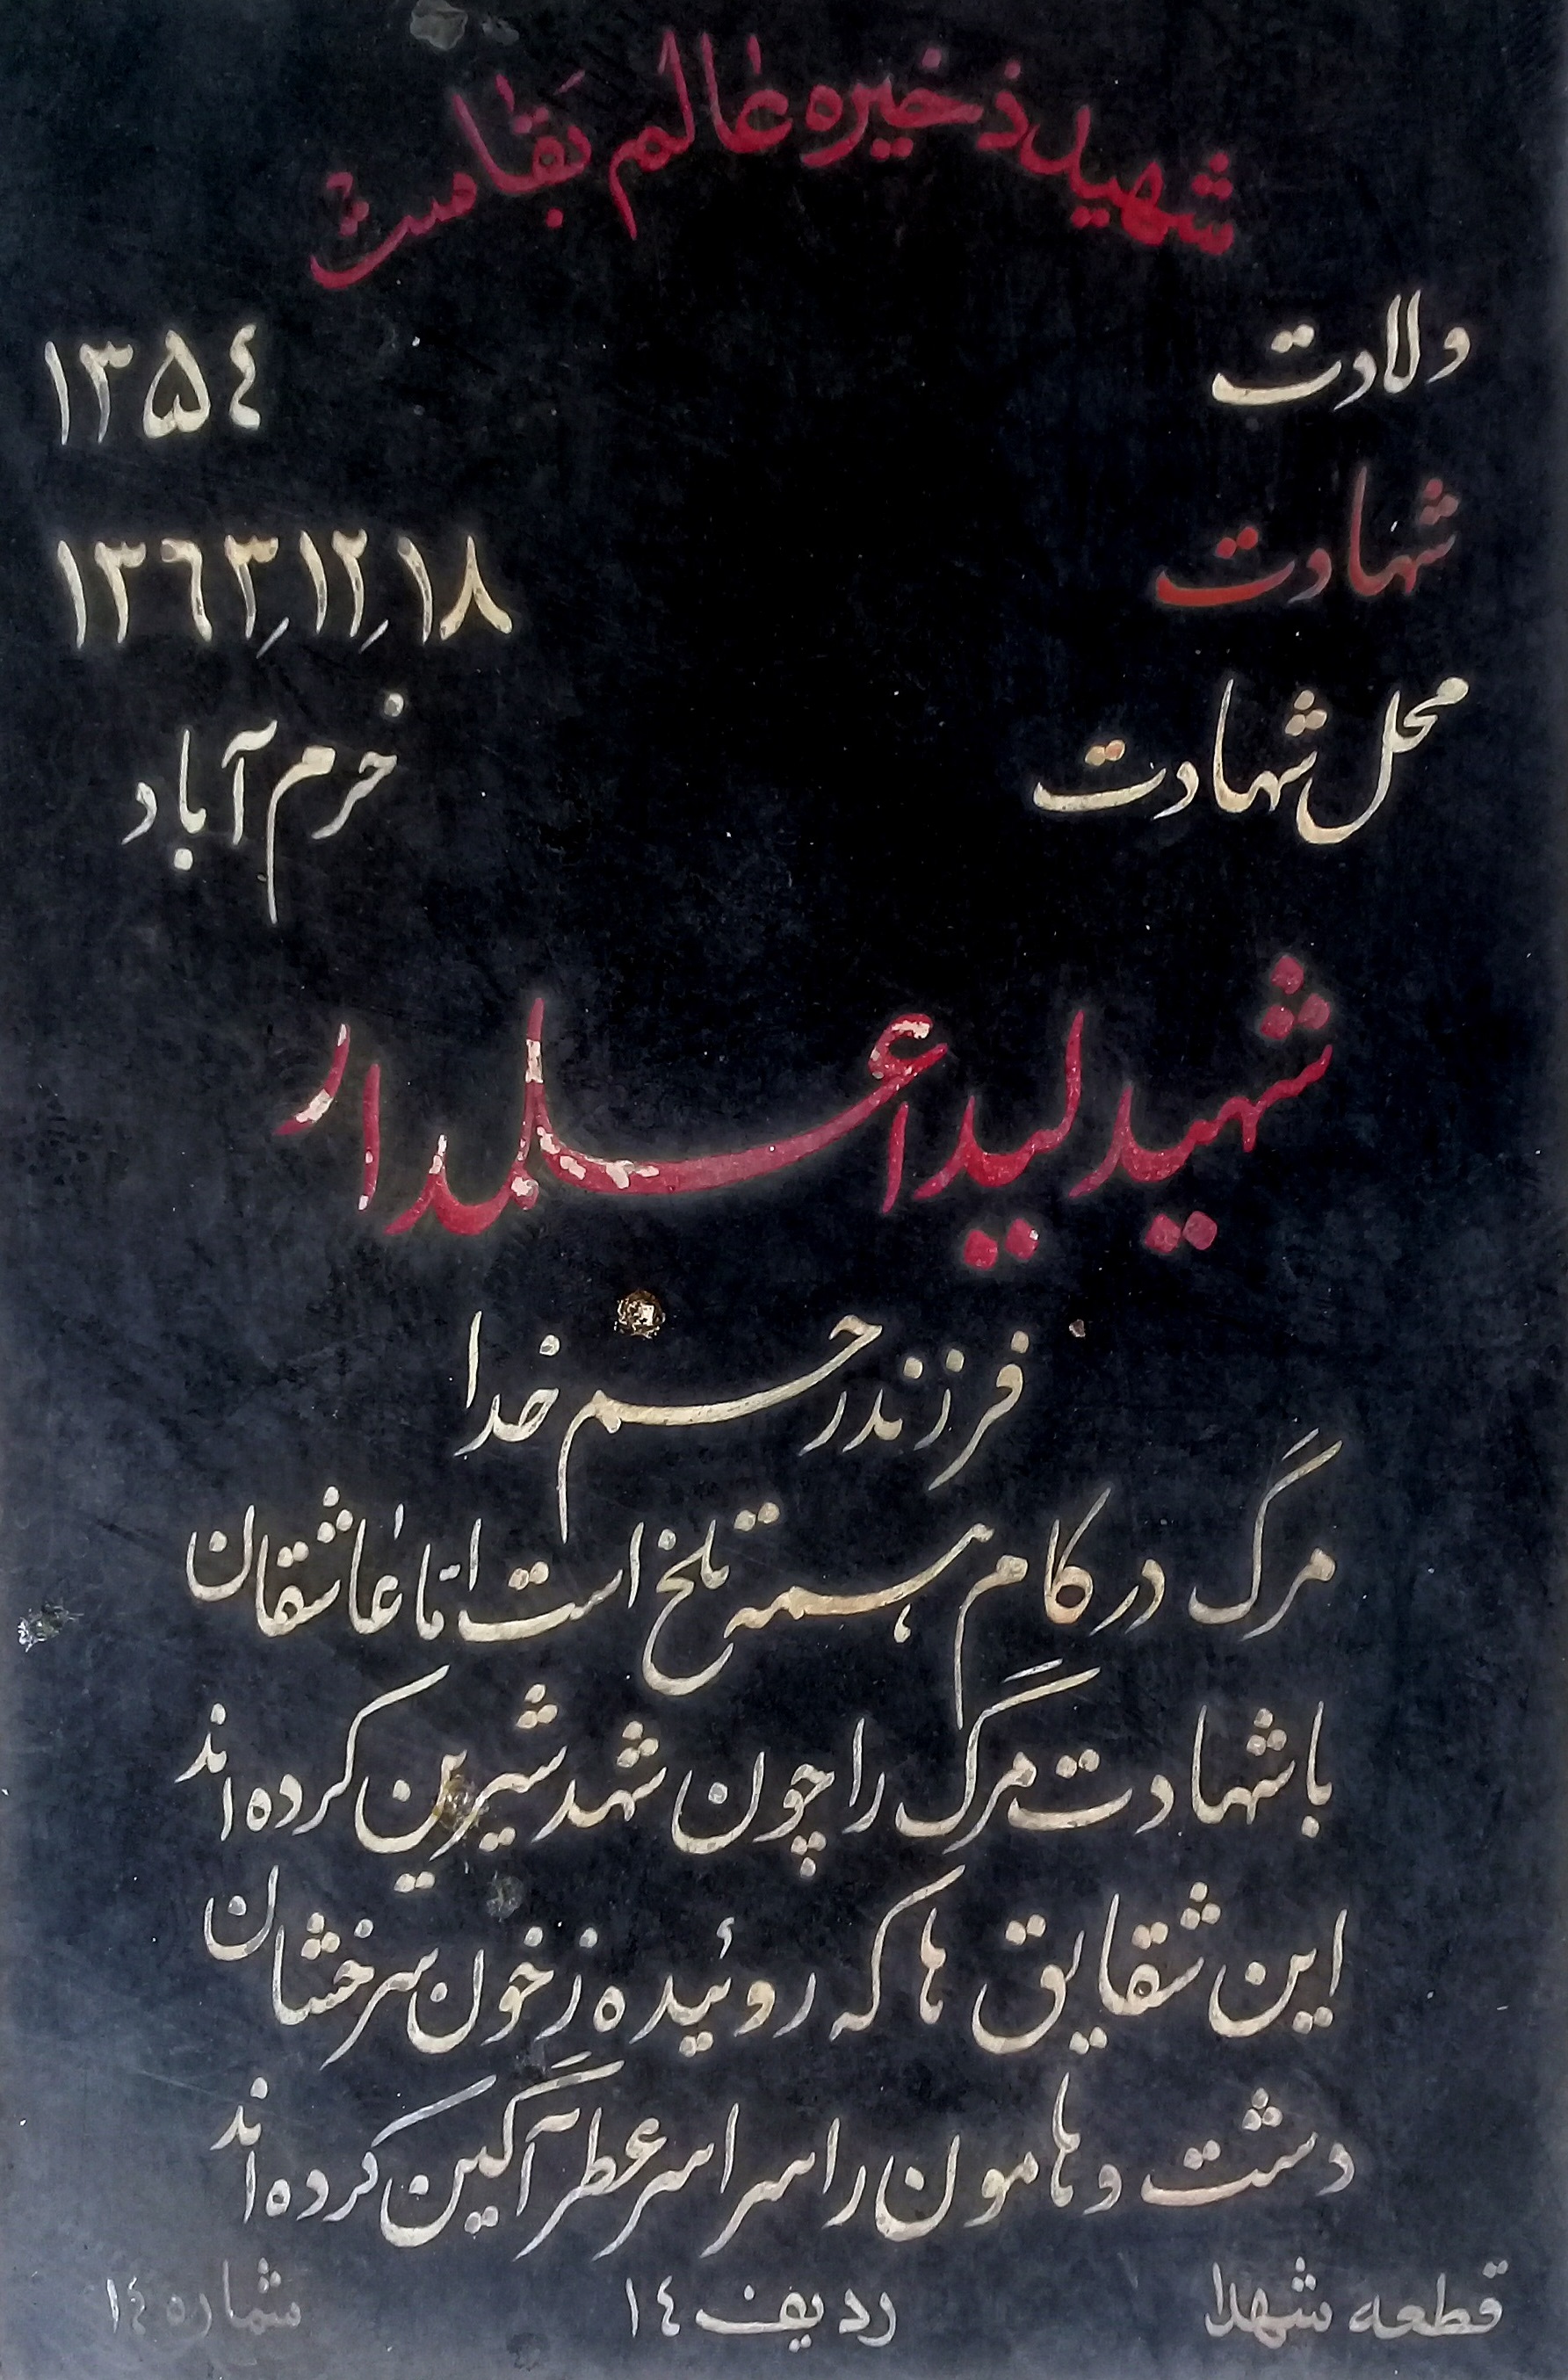 شهید ذخیره عالم بقاست
ولادت ۱۳۵۴
شهادت ۱۳۶۳٫۱۲٫۱۸
محل شهادت خرم آباد
شهید لیدا علمدار
فرزند رحم خدا
مرگ در کام همه تلخ است اما عاشقان
با شهادت مرگ را چون شهد شیرین کرده اند
این شقایق ها که روئیده ز خون سرخشان
دشت و هامون را سراسر عطر آگین کرده اند
قطعه شهدا ردیف ۱۴ شماره ۱۴